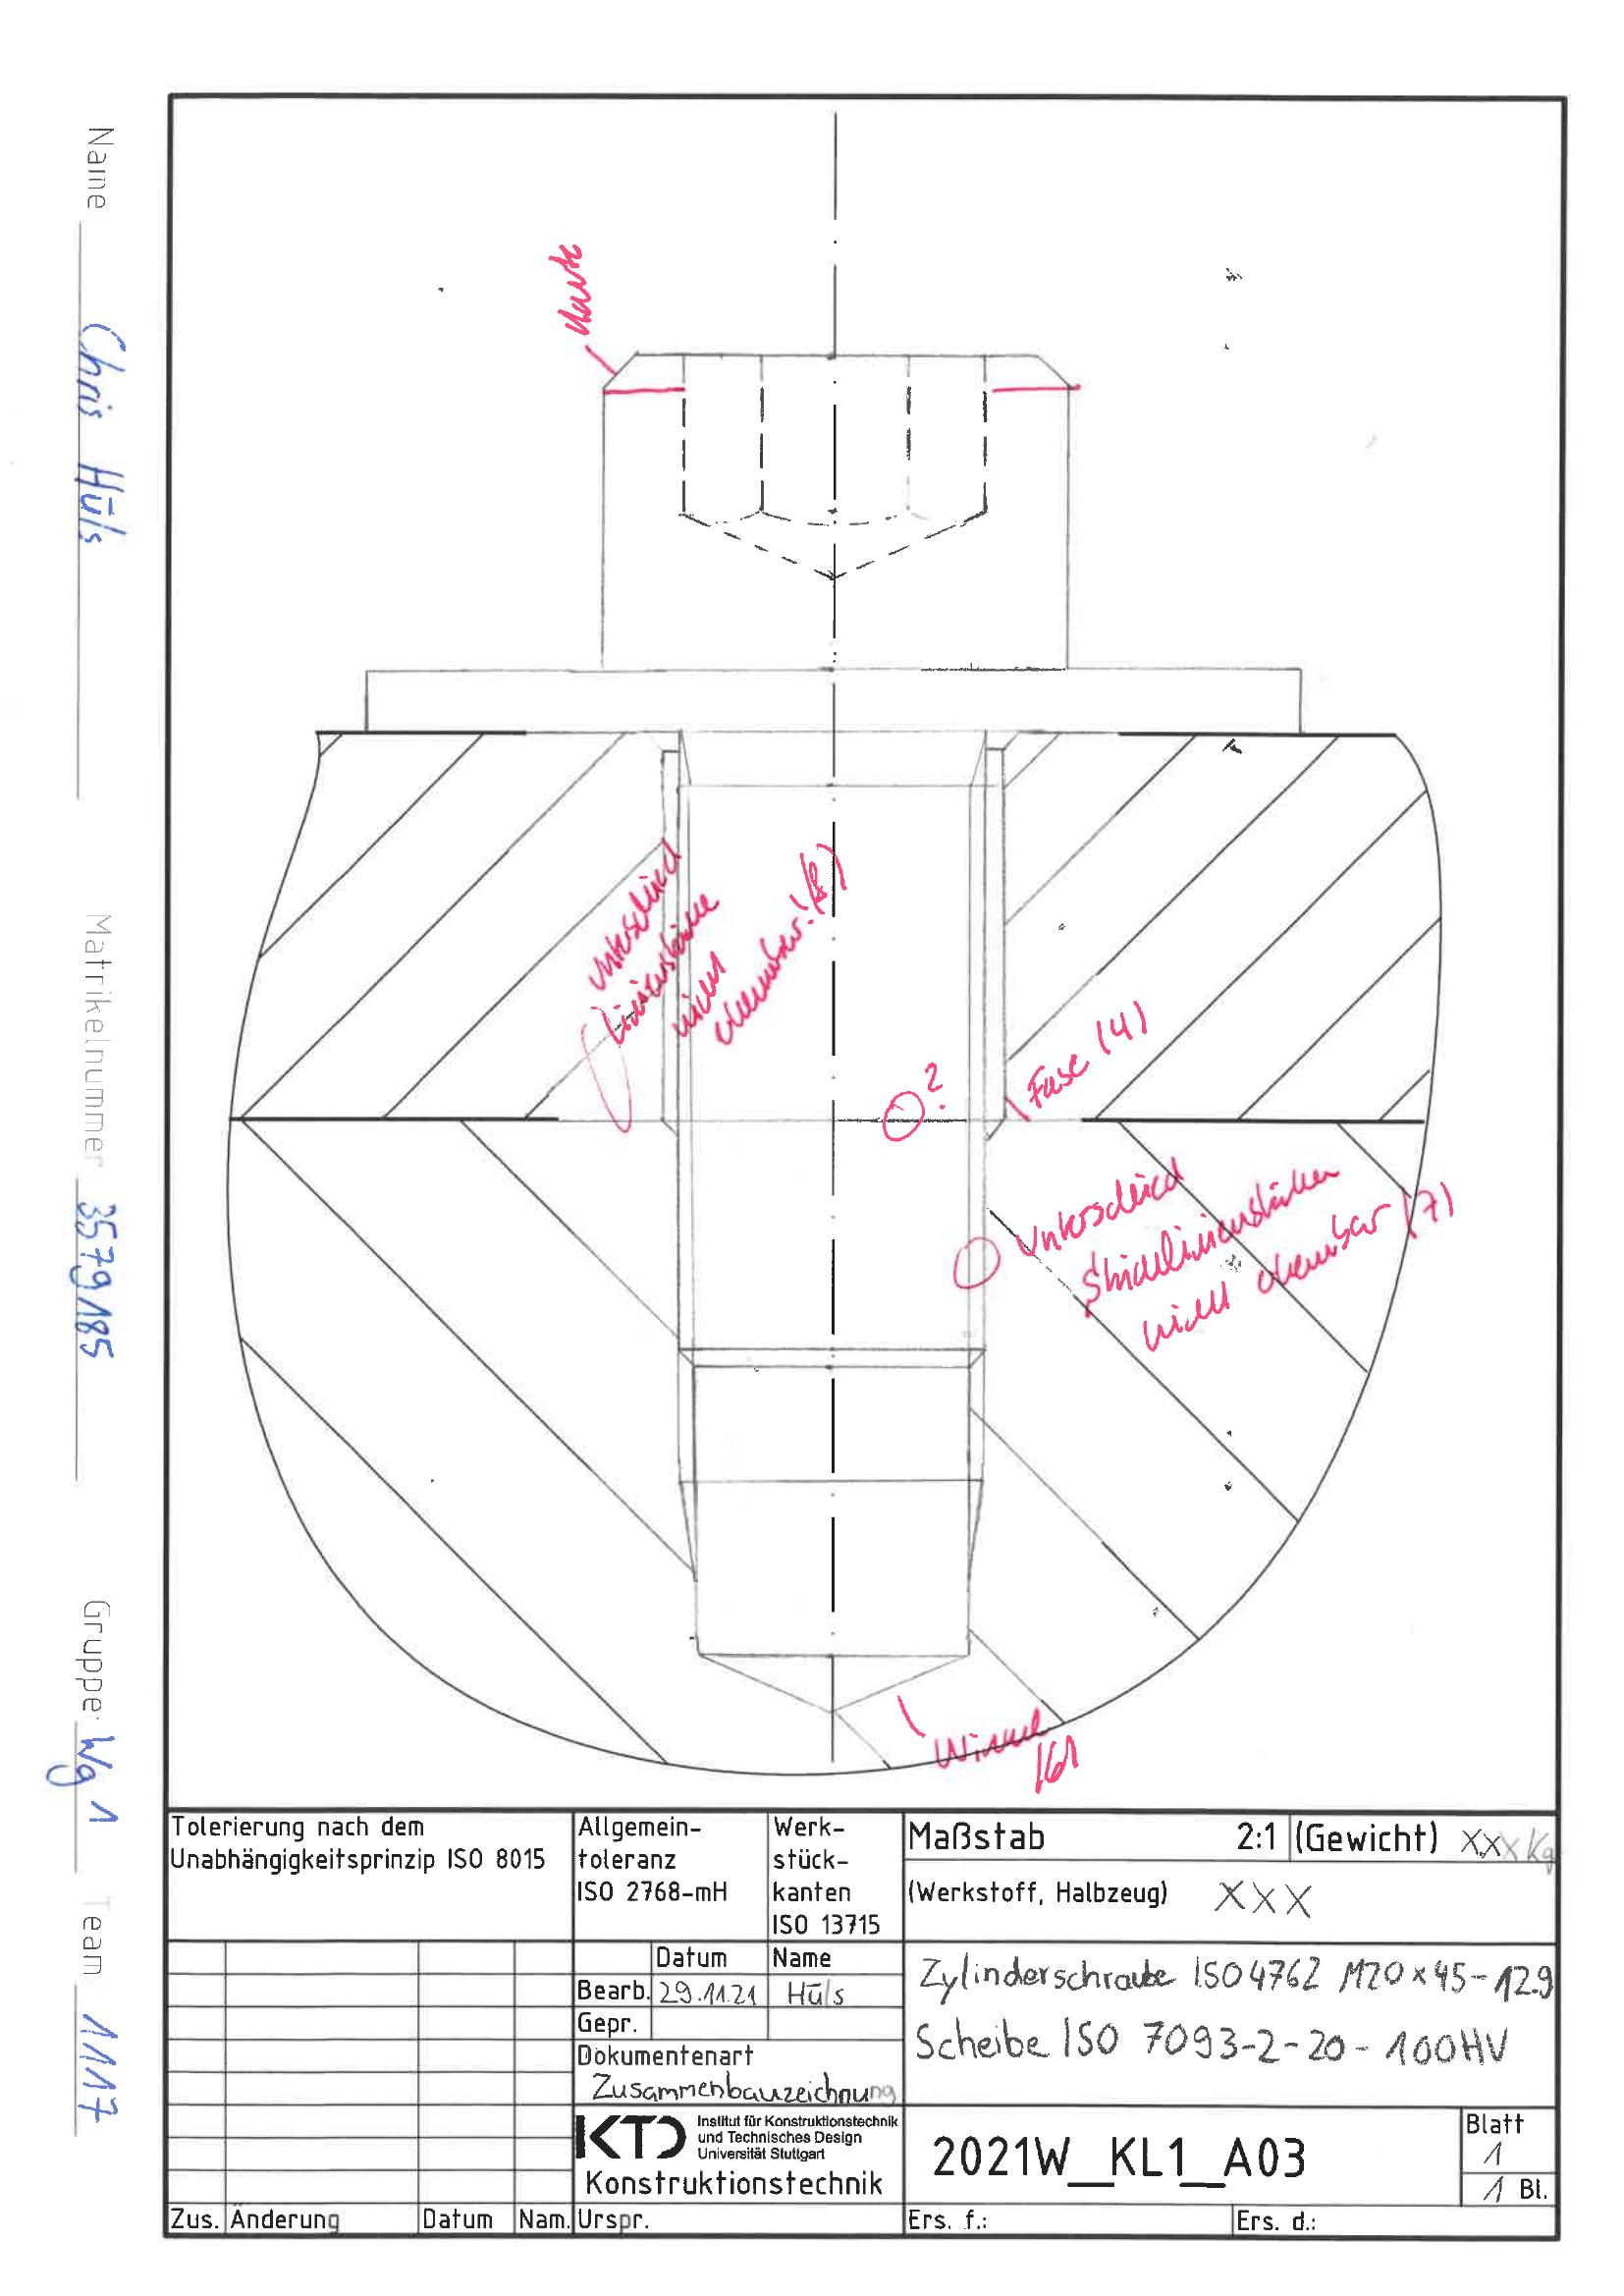 Name Chris Hüls
Matrikelnummer 3579185
Gruppe: Wg 1
Team 1117
Kante
Unterschied
Linienstärke
nicht
erkennbar! (8)
?
Fase (4)
Unterschied
Strichlinienstärken
nicht erkennbar (7)
Winkel
(6)
Tolerierung nach dem
Unabhängigkeitsprinzip ISO 8015
Allgemein-
toleranz
ISO 2768-mH
Werk-
stück-
kanten
ISO 13715
Maßstab 2:1 (Gewicht) XXX Kg
(Werkstoff, Halbzeug) XXX
Datum Name
Bearb. 29.11.21 Hüls
Gepr.
Dokumentenart
Zusammenbauzeichnung
Zylinderschraube ISO 4762 M20x45-12.9
Scheibe ISO 7093-2-20-100HV
KTD Institut für Konstruktionstechnik
und Technisches Design
Universität Stuttgart
Konstruktionstechnik
2021W_KL1_A03
Blatt
1
1 Bl.
Zus. Änderung Datum Nam. Urspr. Ers. f.: Ers. d.: